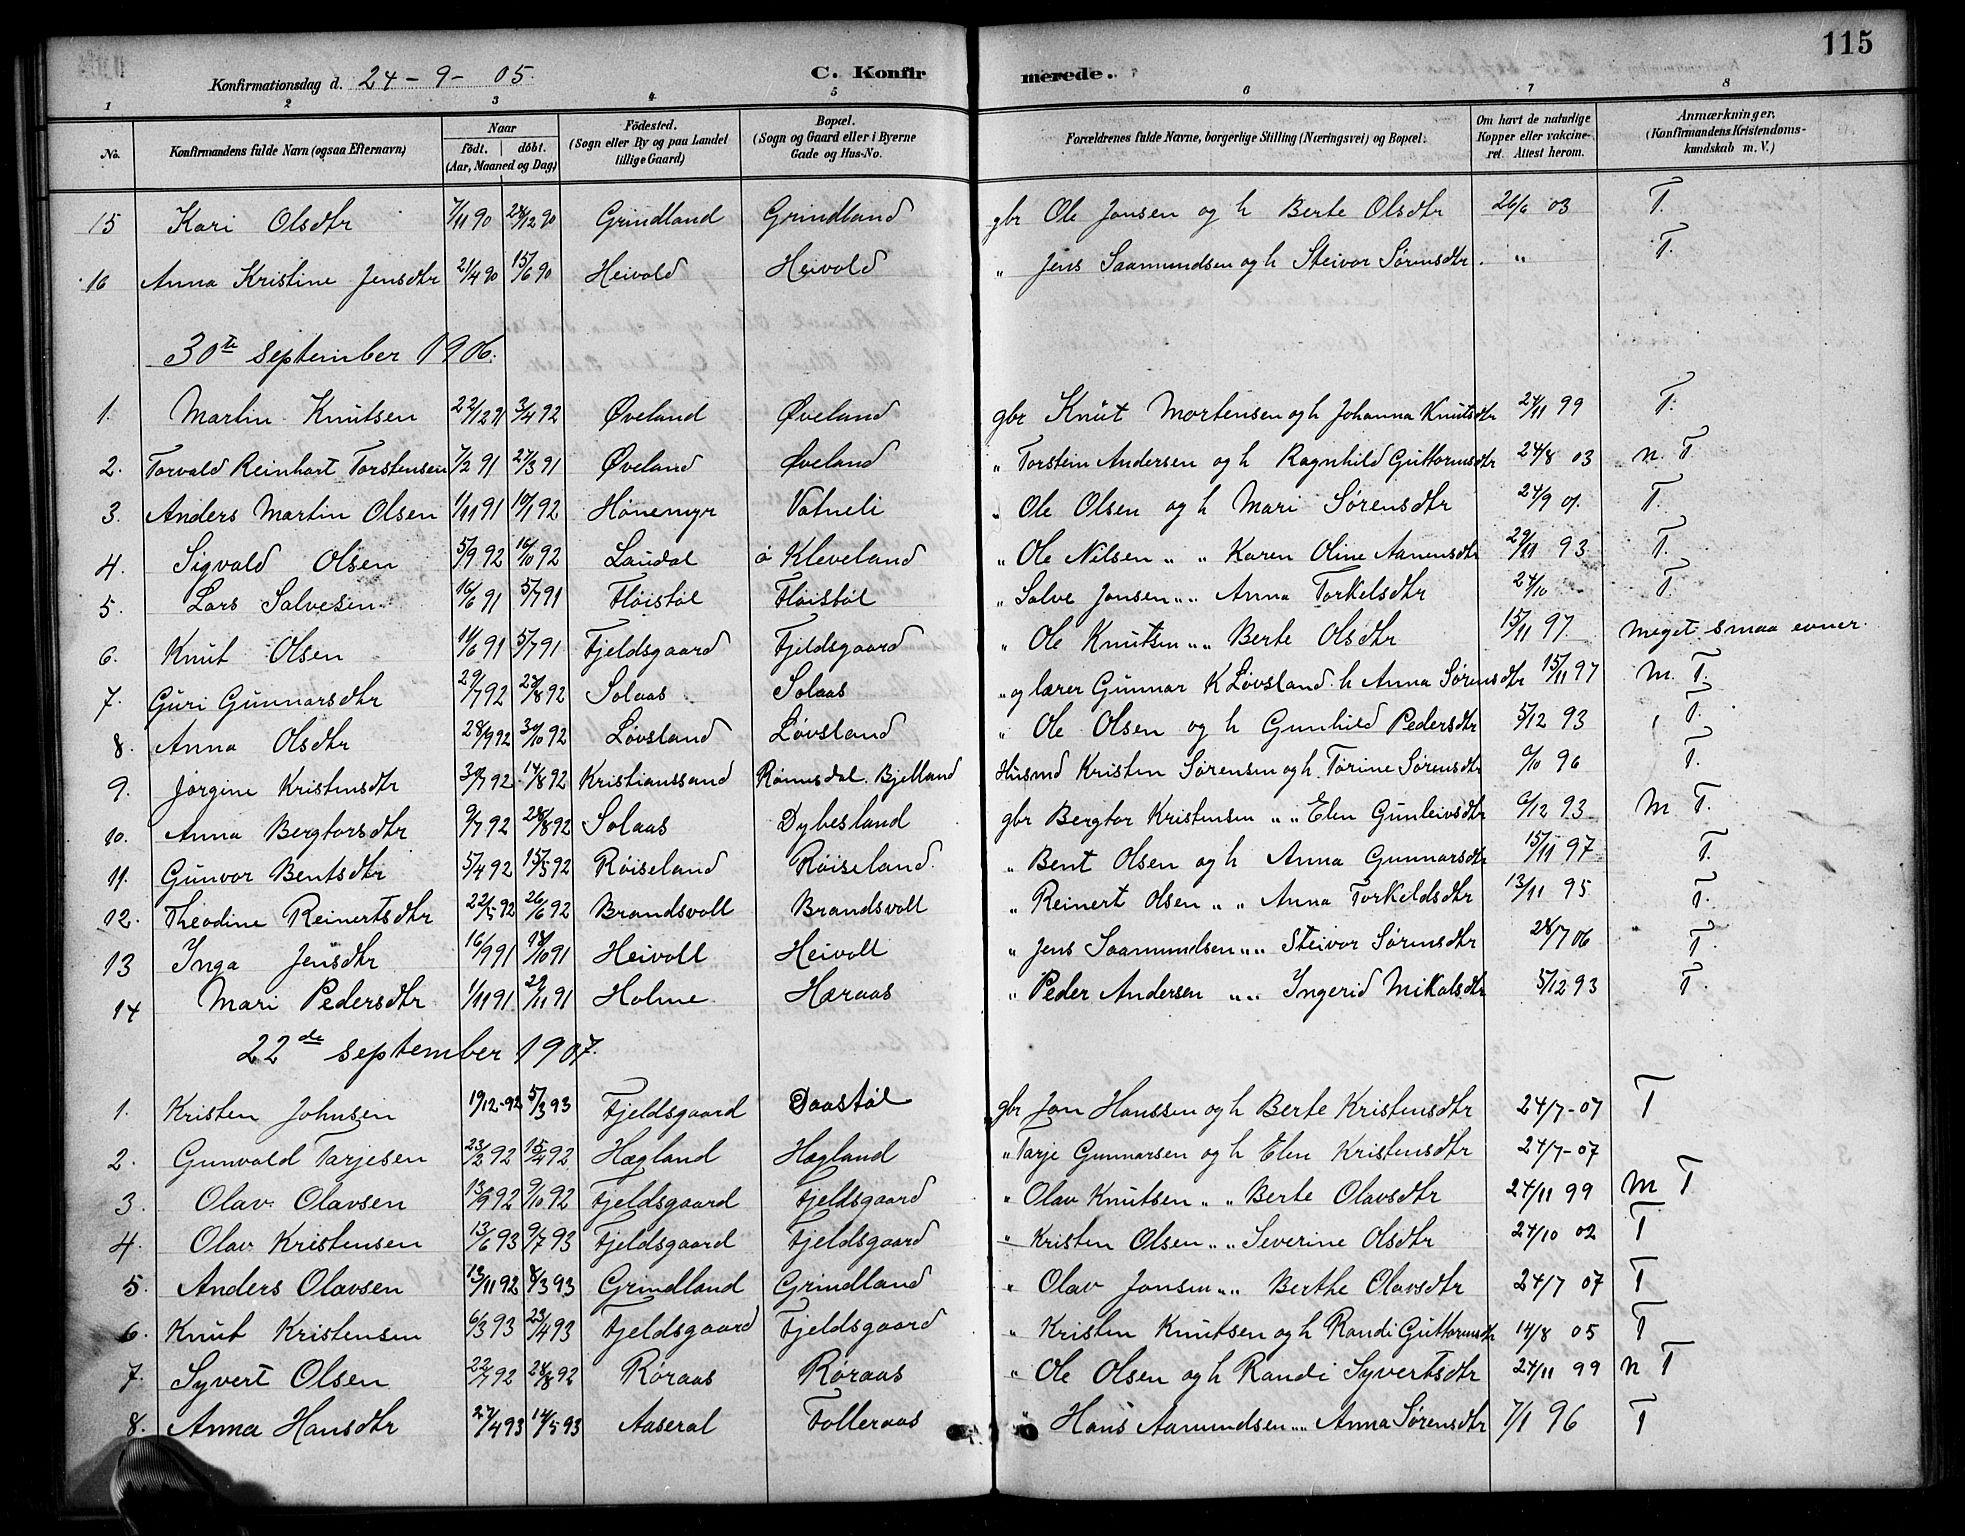 115
Konfirmationsdag d. 24-9-05. C. Konfirmerede.
1 2 3 4 5 6 7 8
No. Konfirmandens fulde Navn (ogsaa Efternavn) Naar Födt. döbt. (Aar, Maaned og Dag) Födested. (Sogn eller By og paa Landet tillige Gaard) Bopæl. (Sogn og Gaard eller i Byerne Gade og Hus-No. Forældrenes fulde Navne, borgerlige Stilling (Næringsvei) og Bopæl. Om havt de naturlige Kopper eller vakcineret. Attest herom. Anmærkninger. (Konfirmandens Kristendomskundskab m. V.)
15 Kari Olsdtr 7/11 90 28/12 90 Grindland Grindland gbr Ole Jonsen og h Berte Olsdtr 26/6 03 T.
16 Anna Kristine Jensdtr 21/4 90 15/6 90 Heivold Heivold " Jens Saamundsen og h Steivor Sørensdtr. " T.
30te september 1906.
1. Martin Knutsen 22/12 91 3/4 92 Øveland Øveland gbr Knut Mortensen og h Johanna Knutsdtr 24/11 99 T.
2. Torvald Reinhart Torstensen 7/2 91 27/3 91 Øveland Øveland " Torstein Andersen og h Ragnhild Guttormsdtr 24/8 03 n. T
3. Anders Martin Olsen 1/11 91 10/1 92 Hønemyr Vatneli " Ole Olsen og h Mari Sørensdtr 24/9 01. T.
4. Sigvald Olsen 5/9 92 16/10 92 Laudal ø Kleveland " Ole Nilsen " " Karen Oline Aanensdtr 29/11 93 T.
5. Lars Salvesen 16/6 91 5/7 91 Fløistøl Fløistøl " Salve Jonsen " " Anna Torkelsdtr 24/10 T.
6. Knut Olsen 11/6 91 5/7 91 Fjeldsgaard Fjeldsgaard " Ole Knutsen " " Berte Olsdtr 15/11 97 Meget smaa evner.
7. Guri Gunnarsdtr 29/7 92 28/8 92 Solaas Solaas " og lærer Gunnar K Løvsland h Anna Sørensdtr 15/11 97 M. T.
8. Anna Olsdtr 28/9 92 30/10 92 Løvsland Løvsland " Ole Olsen og h Gunhild Pedersdtr 5/12 93 T.
9. Jørgine Kristensdtr 30/7 92 14/8 92 Kristianssand Rømesdal. Bjelland Husmd Kristen Sørensen og h Torine Sørensdtr 9/10 96 T.
10. Anna Bergtorsdtr 9/7 92 28/8 92 Solaas Dybesland gbr Bergtor Kristensen " " Elen Gunleivsdtr 9/12 93 M T.
11. Gunvor Bentsdtr 5/4 92 15/5 92 Røiseland Røiseland " Bent Olsen og h Anna Gunnarsdtr 15/11 97 T.
12. Theodine Reinertsdtr 22/5 92 26/6 92 Brandsvoll Brandsvoll " Reinert Olsen " " Anna Torkildsdtr 13/11 95 T.
13 Inga Jensdtr 16/9 91 18/10 91 Heivoll Heivoll " Jens Saamundsen " " Steivor Sørensdtr 28/7 06 T.
14 Mari Pedersdtr 1/11 91 29/11 91 Holme Høraas " Peder Andersen " " Ingerid Mikalsdtr 5/12 93 T.
22de september 1907.
1. Kristen Johnsen 19/12-92 5/3 93 Fjeldsgaard Daastøl gbr Jon Hanssen og h Berte Kristensdtr 24/7-07 T
2. Gunvald Tarjesen 23/2 92 15/4 92 Hægland Hægland " Tarje Gunnarsen og h Elen Kristensdtr 24/7-07
3. Olav Olavsen 13/9 92 9/10 92 Fjeldsgaard Fjeldsgaard " Olav Knutsen " " Berte Olavsdtr 24/11 99 M T
4. Olav Kristensen 13/6 93 9/7 93 Fjeldsgaard Fjeldsgaard " Kristen Olsen " " Severine Olsdtr 24/10 02 T
5. Anders Olavsen 13/11 92 8/3 93 Grindland Grindland " Olav Jonsen " " Berthe Olavsdtr 24/7 07 T
6. Knut Kristensen 6/3 93 23/4 93 Fjeldsgaard Fjeldsgaard " Kristen Knutsen og h Randi Guttormsdtr 14/8 05 T
7. Syvert Olsen 22/7 92 28/8 92 Røraas Røraas " Ole Olsen og h Randi Syvertsdtr 24/11 99 n T
8. Anna Hansdtr 27/4 93 14/5 93 Aaseral Folleraas " Hans Aamundsen " " Anna Sørensdtr 7/1 96 T